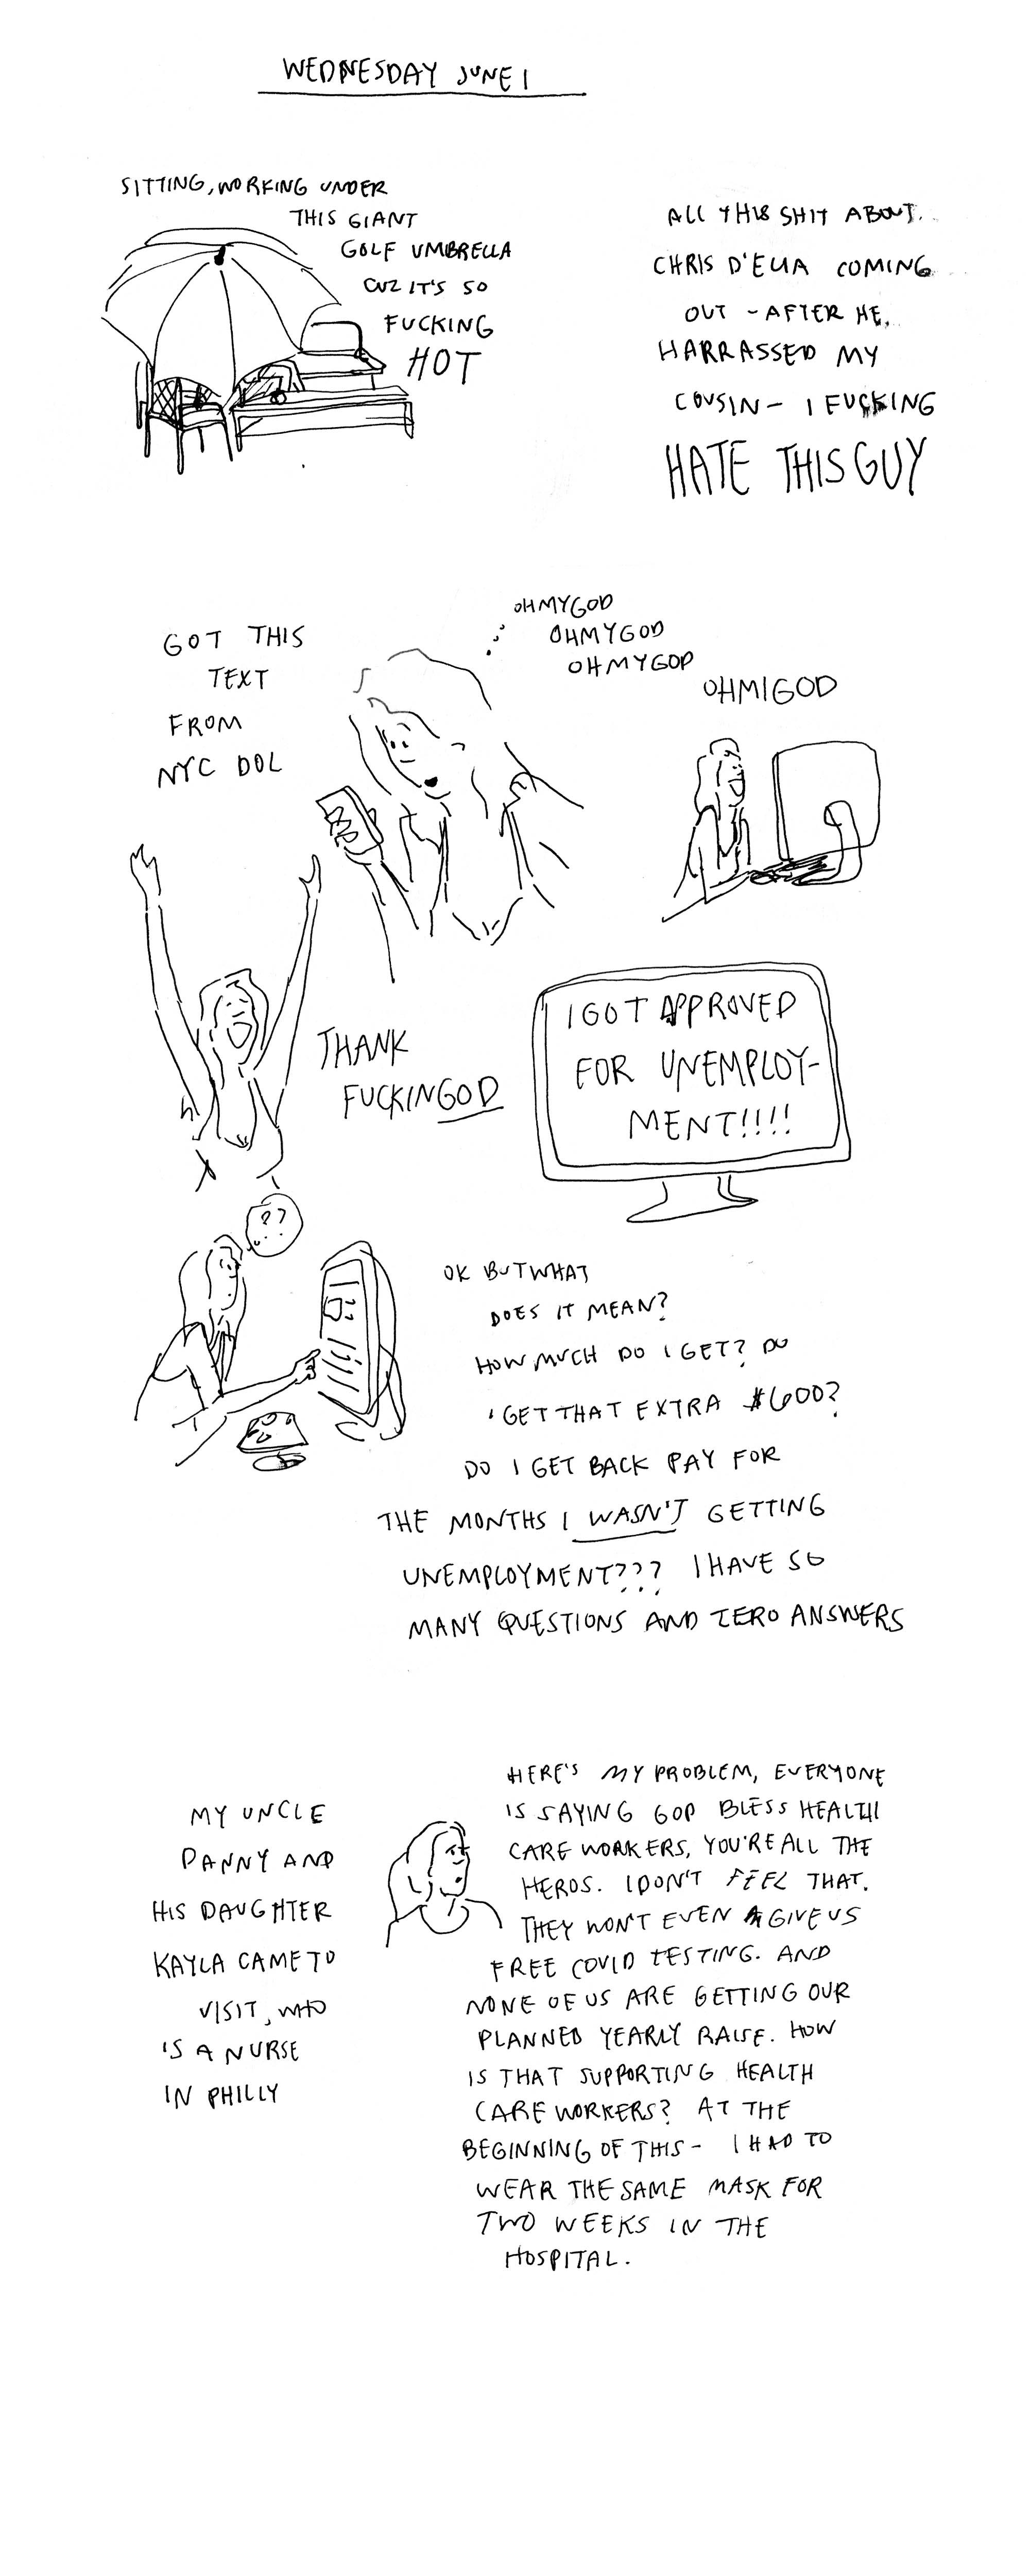 WEDNESDAY JUNE 1
SITTING, WORKING UNDER
THIS GIANT
GOLF UMBRELLA
CUZ IT'S SO
FUCKING
HOT
ALL THIS SHIT ABOUT
CHRIS D'ELIA COMING
OUT - AFTER HE
HARRASSED MY
COUSIN - I FUCKING
HATE THIS GUY
GOT THIS
TEXT
FROM
NYC DOL
OHMYGOD
OHMYGOD
OHMYGOD
OHMIGOD
THANK
FUCKINGOD
I GOT APPROVED
FOR UNEMPLOY-
MENT!!!!
??
OK BUT WHAT
DOES IT MEAN?
HOW MUCH DO I GET? DO
I GET THAT EXTRA $600?
DO I GET BACK PAY FOR
THE MONTHS I WASN'T GETTING
UNEMPLOYMENT??? I HAVE SO
MANY QUESTIONS AND ZERO ANSWERS
MY UNCLE
DANNY AND
HIS DAUGHTER
KAYLA CAME TO
VISIT, WHO
IS A NURSE
IN PHILLY
HERE'S MY PROBLEM, EVERYONE
IS SAYING GOD BLESS HEALTH
CARE WORKERS, YOU'RE ALL THE
HEROS. I DON'T FEEL THAT.
THEY WON'T EVEN GIVE US
FREE COVID TESTING. AND
NONE OF US ARE GETTING OUR
PLANNED YEARLY RAISE. HOW
IS THAT SUPPORTING HEALTH
CARE WORKERS? AT THE
BEGINNING OF THIS - I HAD TO
WEAR THE SAME MASK FOR
TWO WEEKS IN THE
HOSPITAL.